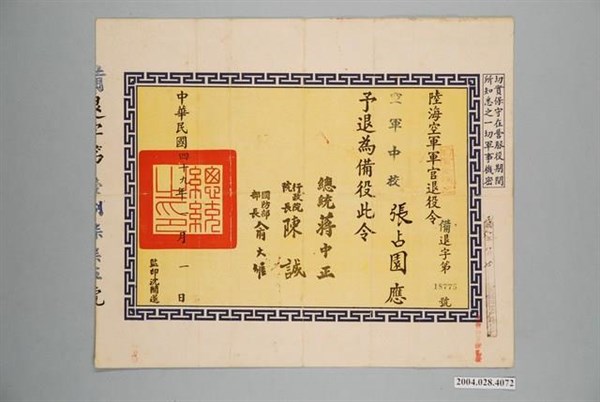 切實保守在營服役期間
所知悉之一切軍事機密
陸海空軍軍官退役令
備退字第18775號
空軍中校 張占園應
予退為備役此令
總統蔣中正
行政院
院長陳誠
國防部
部長俞大維
總統之印
中華民國四十九年 月一日
監印沈開運
備退字第
號
2004.028.4072